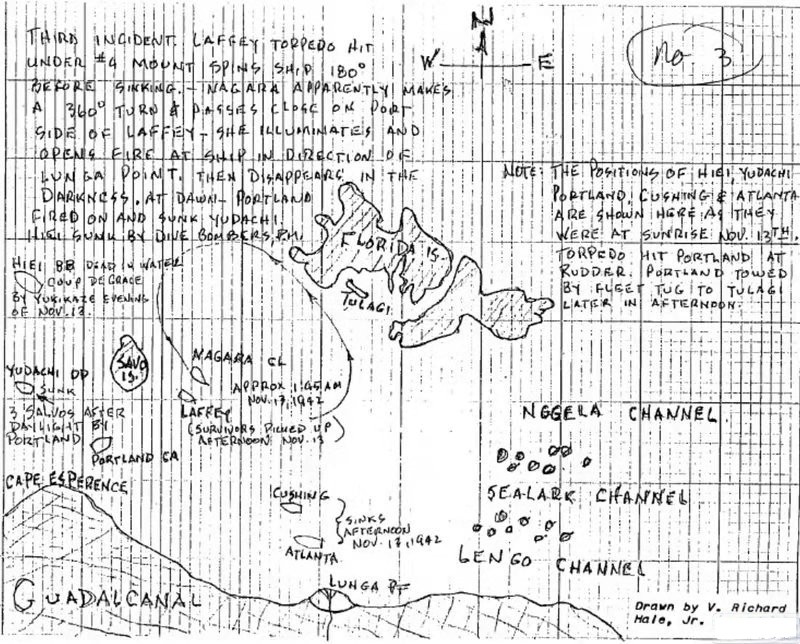 THIRD INCIDENT. LAFFEY TORPEDO HIT
UNDER #4 MOUNT SPINS SHIP 180°
BEFORE SINKING. - NAGARA APPARENTLY MAKES
A 360° TURN & PASSES CLOSE ON PORT
SIDE OF LAFFEY - SHE ILLUMINATES AND
OPENS FIRE AT SHIP IN DIRECTION OF
LUNGA POINT. THEN DISAPPEARS IN THE
DARKNESS. AT DAWN - PORTLAND
FIRED ON AND SUNK YUDACHI.
HIEI SUNK BY DIVE BOMBERS, P.M.
N
W E
No 3
NOTE: THE POSITIONS OF HIEI, YUDACHI
PORTLAND, CUSHING & ATLANTA
ARE SHOWN HERE AS THEY
WERE AT SUNRISE NOV. 13TH.
TORPEDO HIT PORTLAND AT
RUDDER. PORTLAND TOWED
BY FLEET TUG TO TULAGI
LATER IN AFTERNOON.
FLORIDA IS.
TULAGI
HIEI BB DEAD IN WATER
COUP DE GRACE
BY YUKIKAZE EVENING
OF NOV. 13.
SAVO
IS.
NAGARA CL
APPROX 1:45 AM
NOV. 13, 1942
LAFFEY
(SURVIVORS PICKED UP
AFTERNOON NOV. 13)
YUDACHI DD
SUNK
3 SALVOS AFTER
DAYLIGHT BY
PORTLAND
PORTLAND CA
CAPE ESPERENCE
NGGELA CHANNEL
SEALARK CHANNEL
LENGO CHANNEL
CUSHING
SINKS
AFTERNOON
NOV. 13, 1942
ATLANTA
LUNGA PT
GUADALCANAL
Drawn by V. Richard
Hale, Jr.